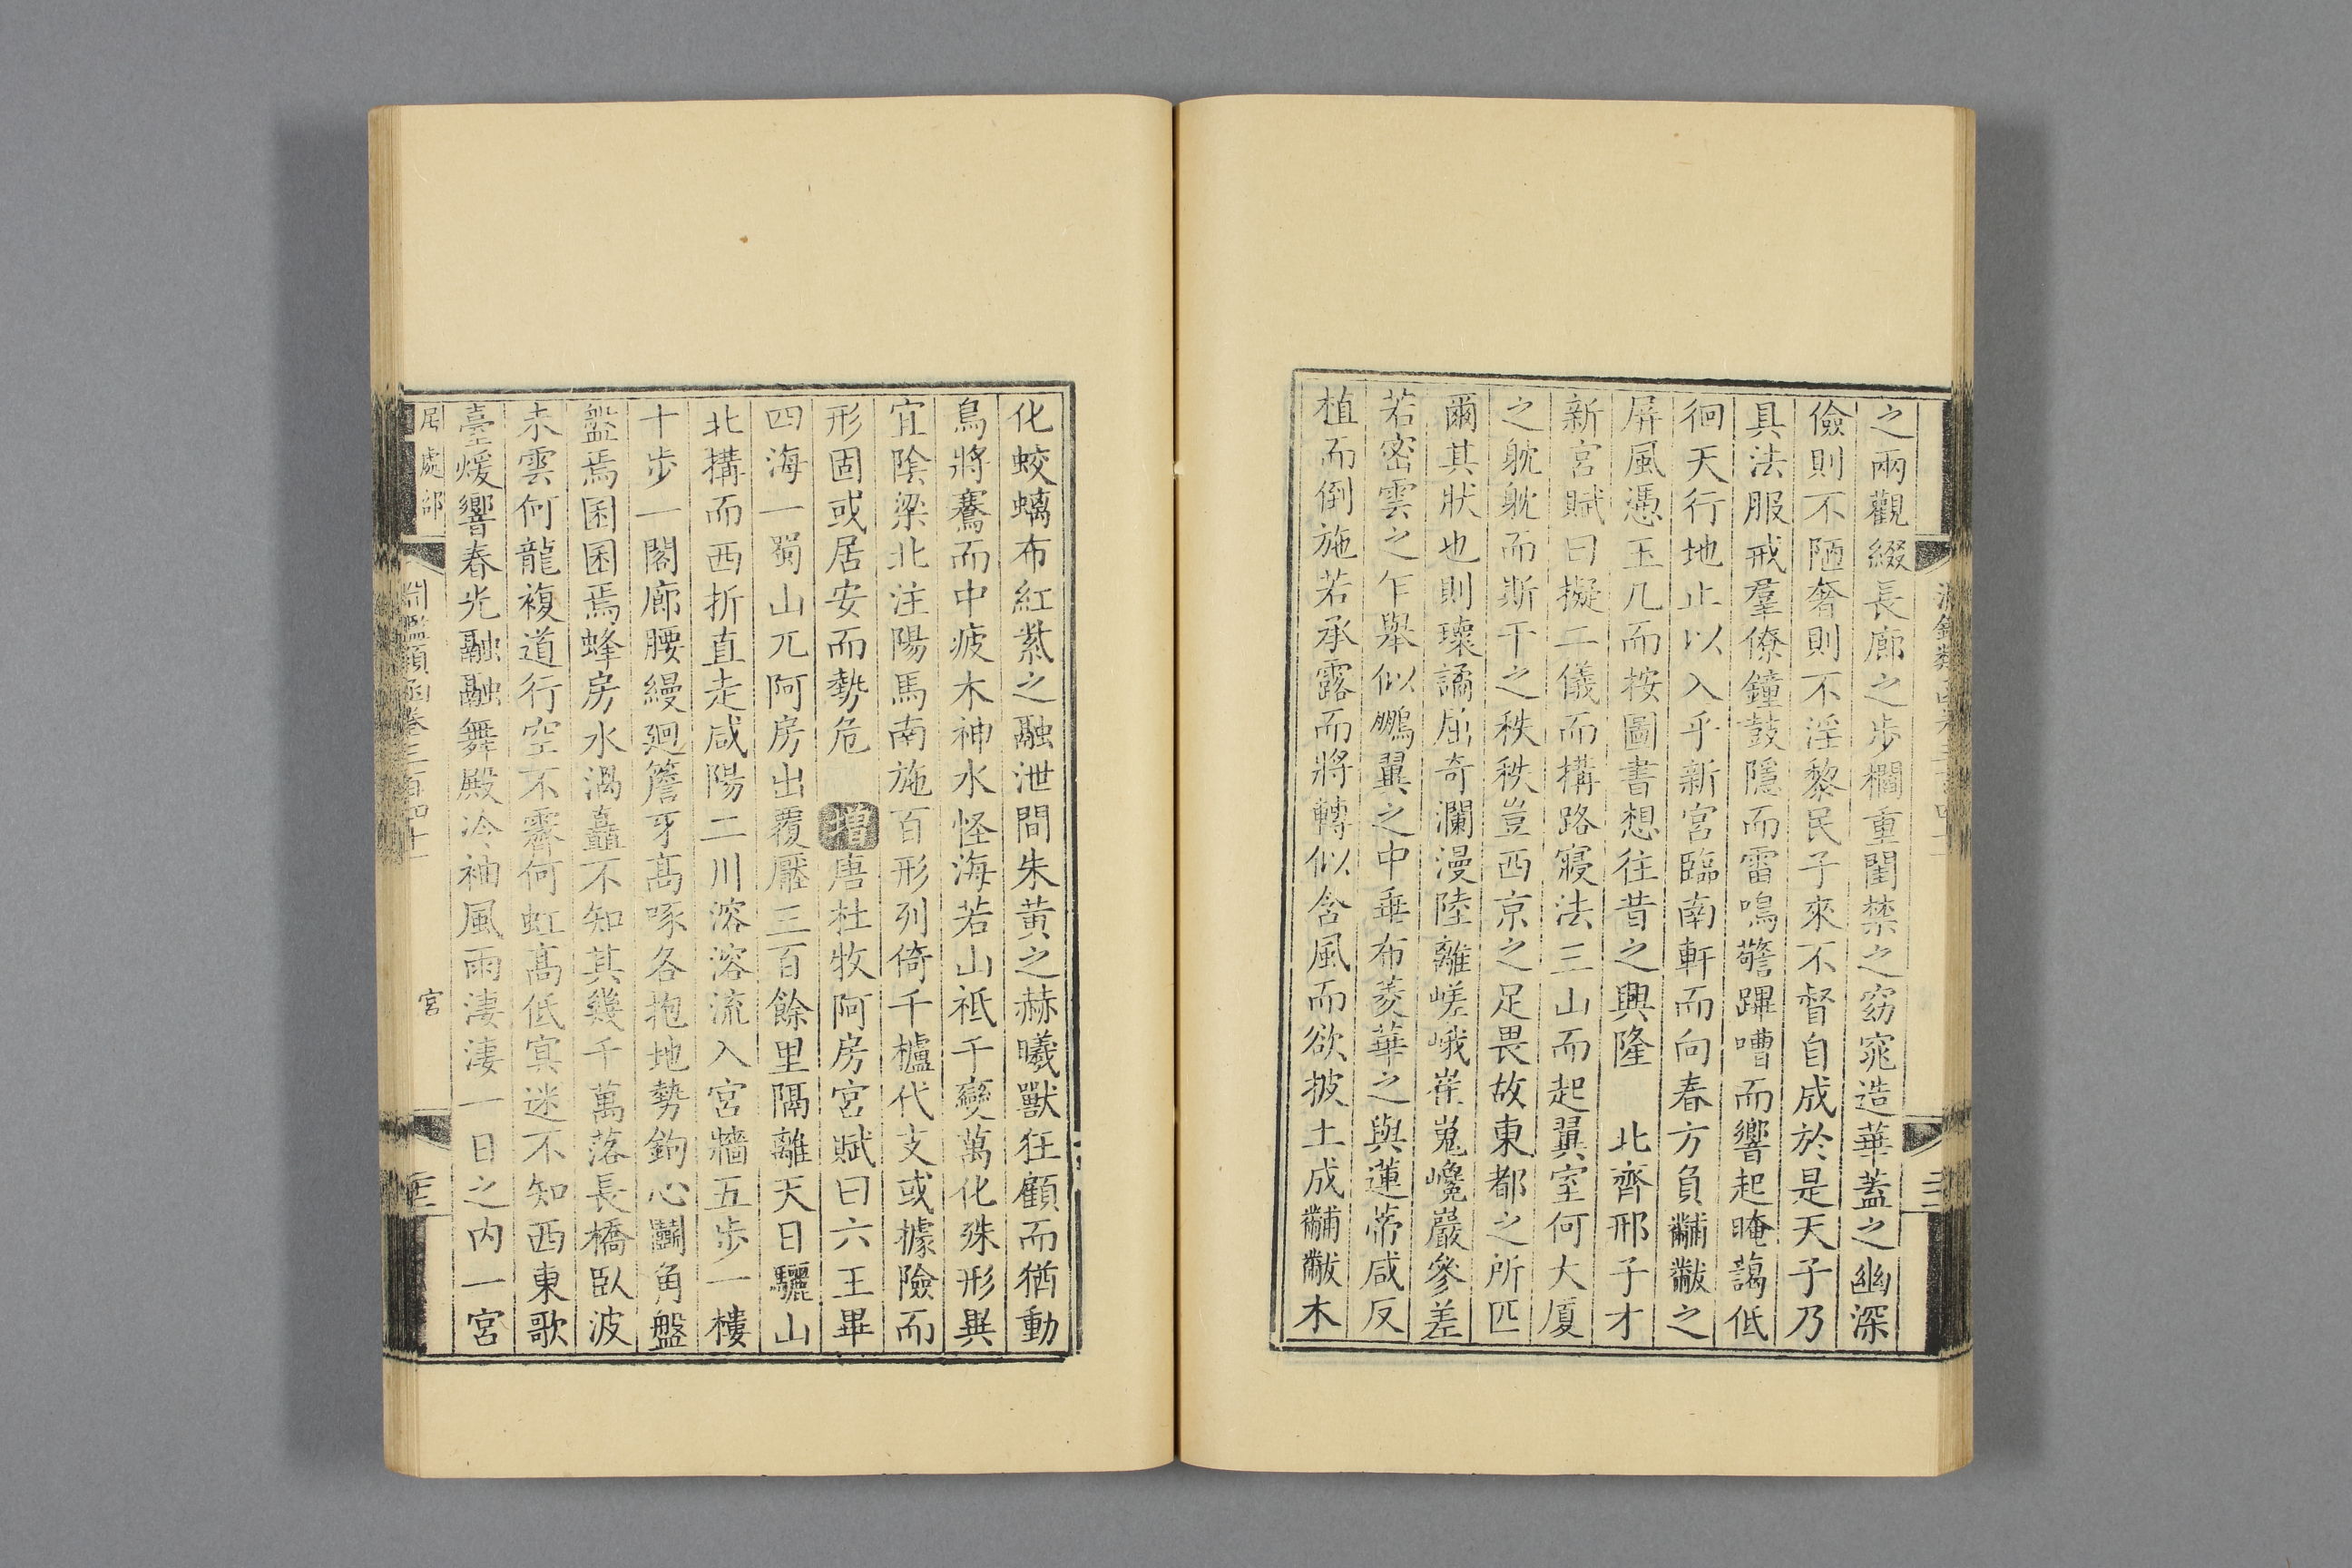 之兩觀綴長廊之步欄重閨禁之窈窕造華蓋之幽深
儉則不陋奢則不淫黎民子來不督自成於是天子乃
具法服戒羣僚鐘鼓隱而雷鳴警蹕嘈而響起晻藹低
徊天行地止以入乎新宮臨南軒而向春方負黼黻之
屏風憑玉几而按圖書想往昔之興隆　北齊邢子才
新宮賦曰擬二儀而構路寢法三山而起翼室何大厦
之躭躭而斯干之秩秩豈西京之足畏故東都之所匹
爾其狀也則瓌譎屈奇瀾漫陸離嵯峨崔嵬巉巖參差
若密雲之乍舉似鵬翼之中垂布菱華之與蓮蔕咸反
植而倒施若承露而將轉似含風而欲披土成黼黻木
化蛟螭布紅紫之融泄間朱黄之赫曦獸狂顧而猶動
鳥將騫而中疲木神水怪海若山祇千變萬化殊形異
宜陰梁北注陽馬南施百形列倚千櫨代支或據險而
形固或居安而勢危　增唐杜牧阿房宮賦曰六王畢
四海一蜀山兀阿房出覆壓三百餘里隔離天日驪山
北構而西折直走咸陽二川溶溶流入宮牆五步一樓
十步一閣廊腰縵廻簷牙髙啄各抱地勢鉤心鬬角盤
盤焉囷囷焉蜂房水渦矗不知其幾千萬落長橋臥波
未雲何龍複道行空不霽何虹髙低冥迷不知西東歌
臺煖響春光融融舞殿冷袖風雨淒淒一日之内一宮
居處部　淵鑑類函卷三百四十一　宮